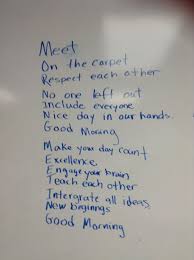 Meet
On the carpet
Respect each other
No one left out
Include everyone
Nice day in our hands.
Good Morning
Make your day count
Excellence
Engage your brain
Teach each other
Intergrate all ideas
New beginnings
Good Morning